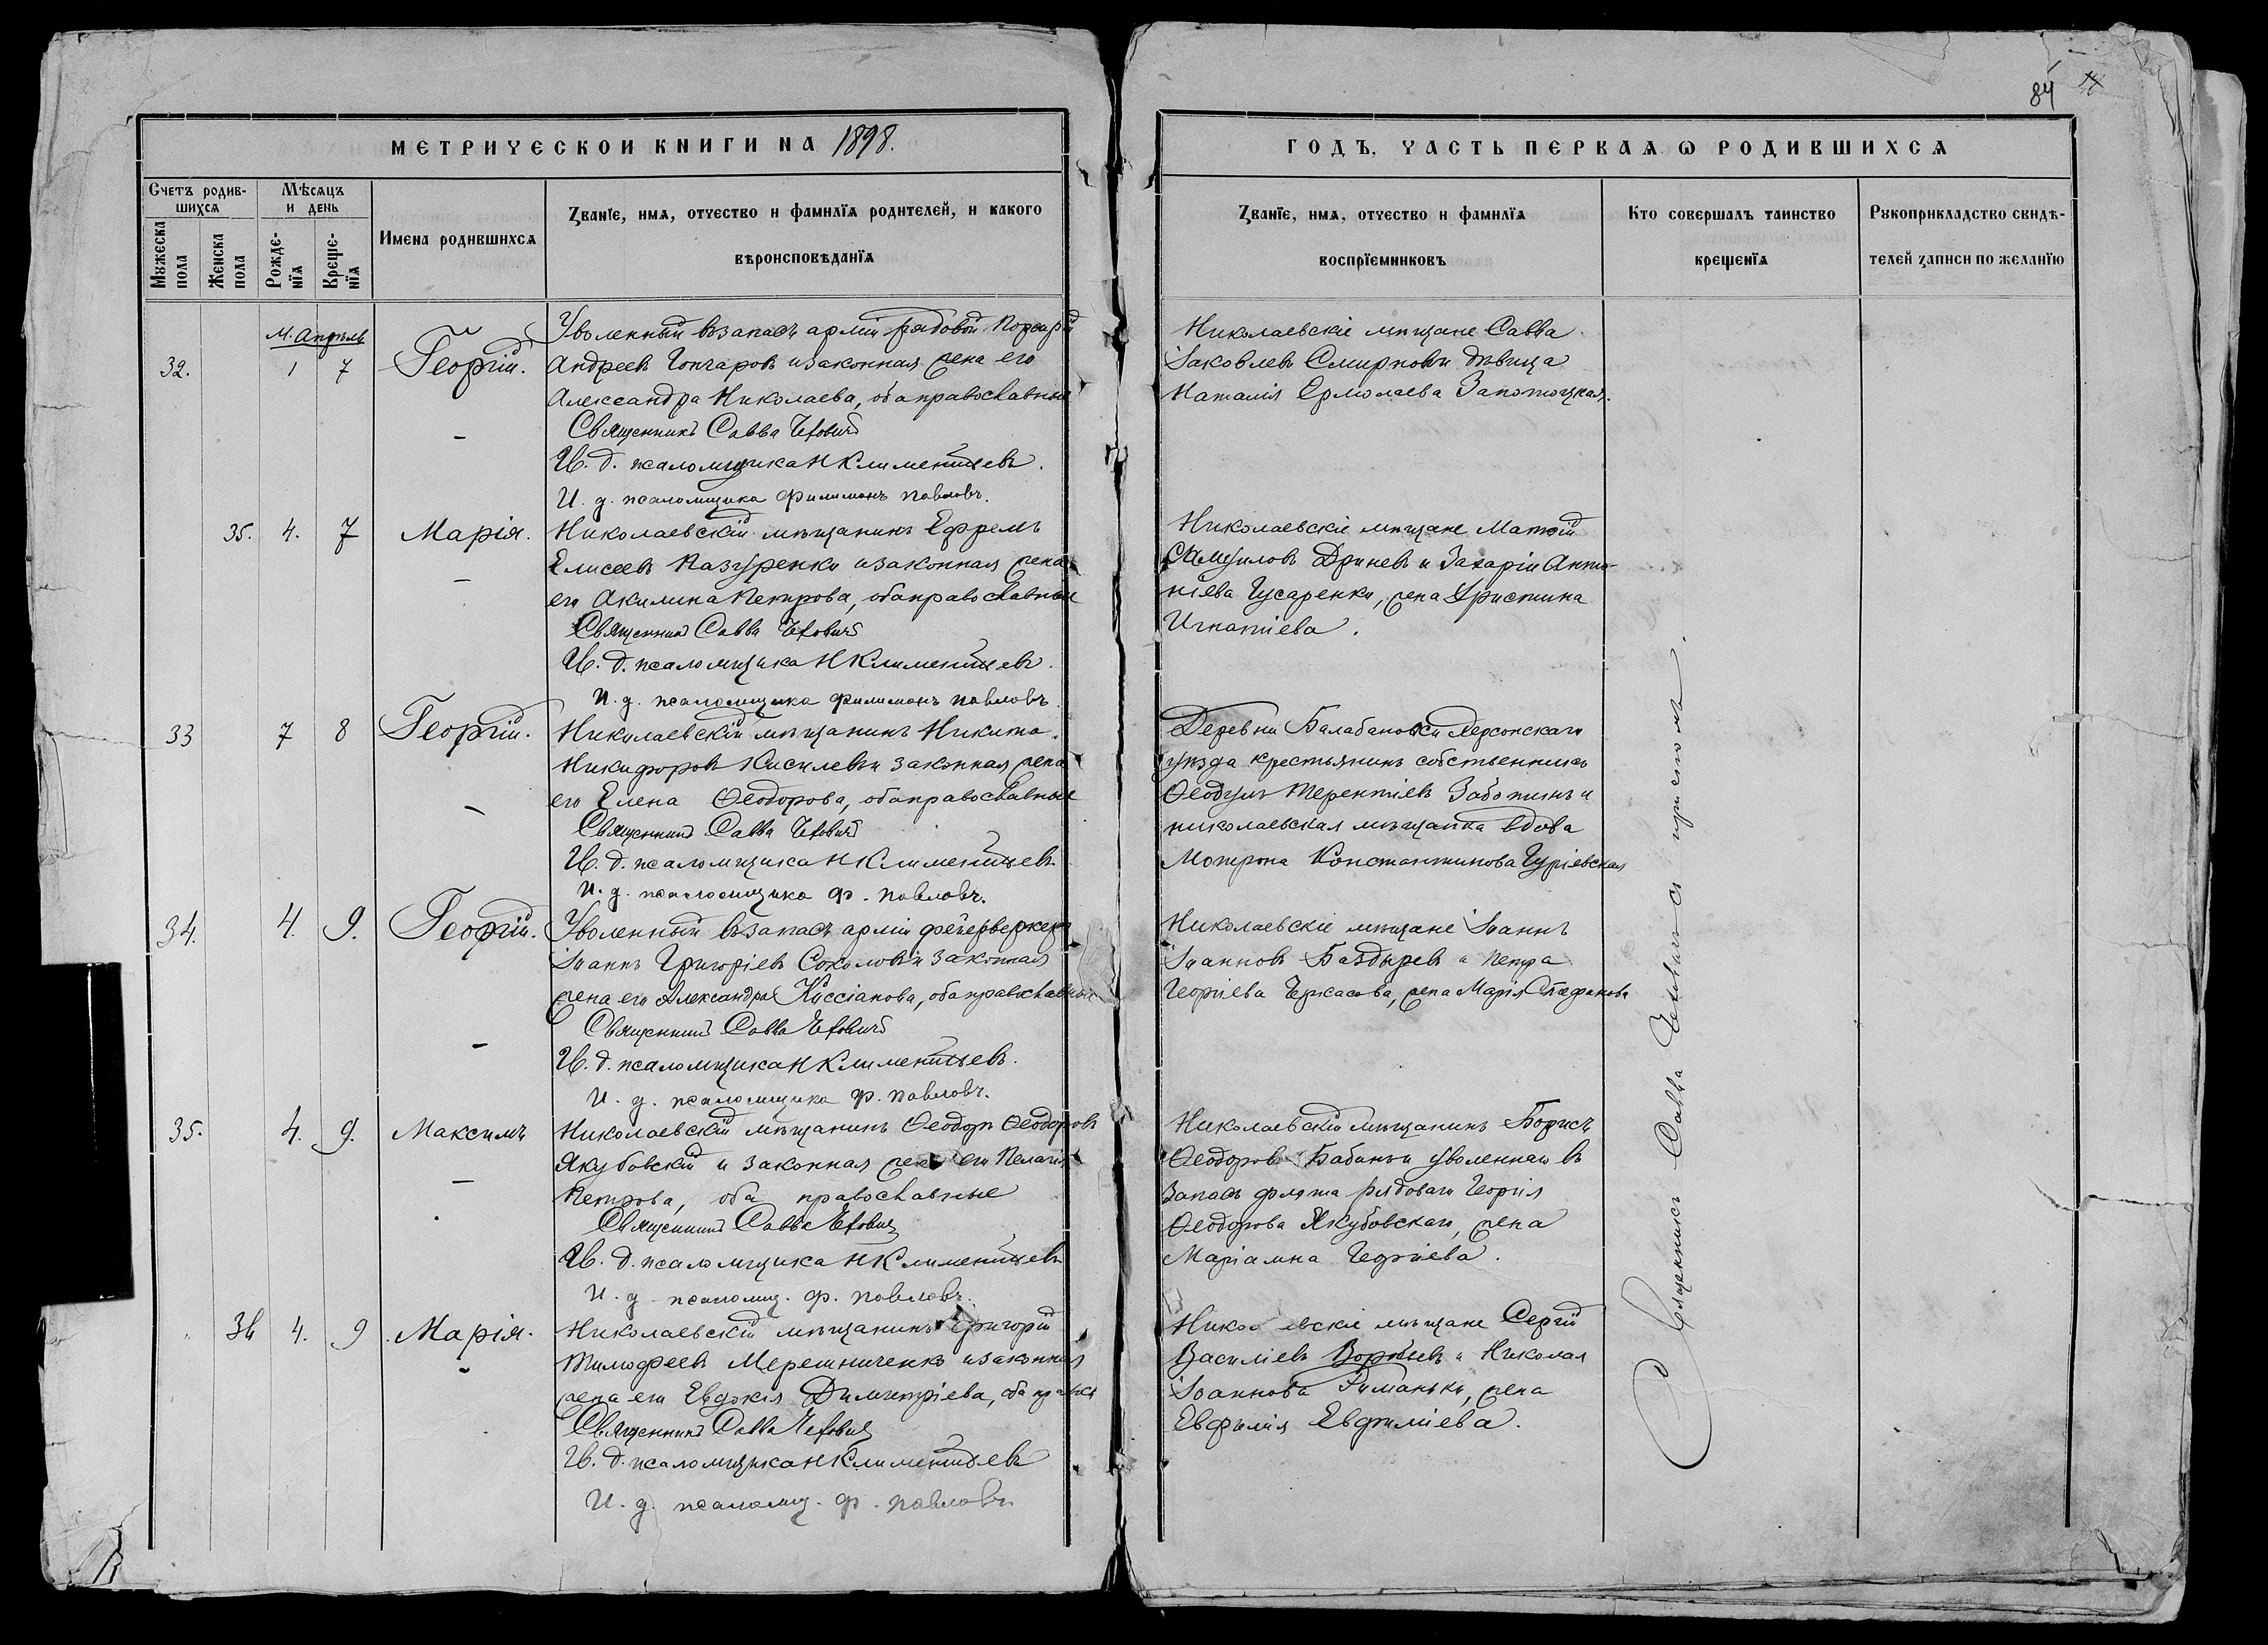 МЕТРИЧЕСКОЙ КНИГИ НА 1898.
Счетъ родив-
шихся
Мѣсяцъ
и день
Мужеска
пола
Женска
пола
Рожде-
нїя
Креще-
нїя
Имена родившихся
Званїе, имя, отчество и фамилїя родителей, и какого
вѣроисповѣданїя
М. Апрѣль
32. 1 7 Георгій.
Уволенный въ запасъ арміи рядовой
Андреевъ Гончаровъ и законная жена его
Александра Николаева, оба православные
Священникъ Савва Чехович
И. д. псаломщика Н Климентьевъ.
И. д. псаломщика Филимонъ Павловъ.
35. 4. 7 Марія.
Николаевскій мѣщанинъ Ефремъ
Елисеевъ Мазуренко и законная жена
его Акилина Петрова, оба православные
Священникъ Савва Чехович
И. д. псаломщика Н Климентьевъ.
И. д. псаломщика Филимонъ Павловъ.
33 7 8 Георгій.
Николаевскій мѣщанинъ Никита
Никифоровъ Киселевъ и законная жена
его Елена Ѳеодорова, оба православные
Священникъ Савва Чехович
И. д. псаломщика Н Климентьевъ
И. д. псаломщика Ф. Павловъ.
34. 4. 9. Георгій.
Уволенный въ запасъ арміи фейерверкеръ
Іоаннъ Григоріевъ Соколовъ и законная
жена его Александра Кассіанова, оба православные
Священникъ Савва Чехович
И. д. псаломщика Н Климентьевъ.
И. д. псаломщика Ф. Павловъ.
35. 4. 9. Максимъ
Николаевскій мѣщанинъ Ѳеодоръ Ѳеодоровъ
Якубовскій и законная жена его Пелагія
Петрова, оба православные
Священникъ Савва Чехович
И. д. псаломщика Н Климентьевъ
И. д. псаломщ. Ф. Павловъ.
36 4. 9 Марія.
Николаевскій мѣщанинъ Григорій
Тимофеевъ Мерешниченко и законная
жена его Евдокія Димитріева, оба правосл
Священникъ Савва Чехович
И. д. псаломщика Н Климентьевъ
И. д. псаломщ. Ф. Павловъ
84
ГОДЪ, ЧАСТЬ ПЕРВАЯ Ѡ РОДИВШИХСЯ
Званїе, имя, отчество и фамилїя
воспрїемниковъ
Кто совершалъ таинство
крещенїя
Рукоприкладство свидѣ-
телей записи по желанїю
Николаевскіе мѣщане Савва
Іаковлевъ Смирновъ и дѣвица
Наталія Ермолаева Запотоцкая.
Николаевскіе мѣщане Матѳій
Самуиловъ Дриневъ и Захаріи Анто-
ніева Гусаренки, жена Христина
Игнатіева.
Деревни Балабановки Херсонскаго
уѣзда крестьянинъ собственникъ
Ѳеодулъ Терентіевъ Заботинъ и
николаевская мѣщанка вдова
Мотрона Константинова Гуріевская
Николаевскіе мѣщане Іоаннъ
Іоанновъ Баздыревъ и Петра
Георгіева Черкасова, жена Марія Стефанова
Николаевскій мѣщанинъ Борисъ
Ѳеодоровъ Бабинъ и уволеннаго въ
запасъ флота рядоваго Георгія
Ѳеодорова Якубовскаго, жена
Маріамна Георгіева.
Николаевскіе мѣщане Сергій
Василіевъ Воробьевъ и Николая
Іоаннова Романьки, жена
Евфимія Евфиміева.
Священникъ Савва Чеховичъ съ причтомъ.